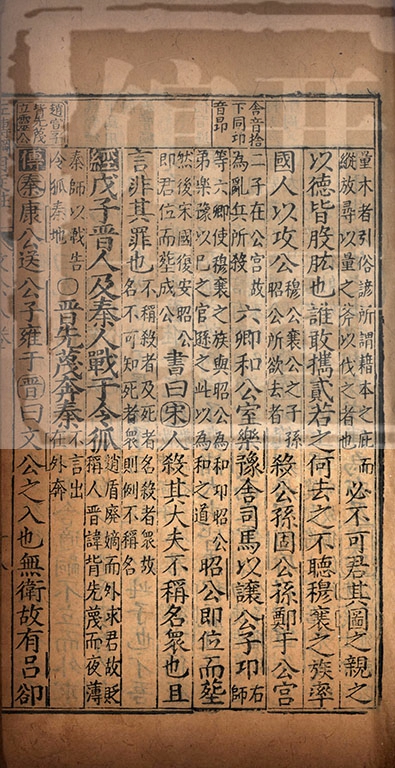 舍音捨
下同卬
音昂
趙宣子
背先蔑
立靈公
量木者引俗諺所謂藉本之庇而
縱放尋以量之斧以伐之者也
必不可君其圖之親之
以德皆股肱也誰敢攜貳若之何去之不聽穆襄之族率
國人以攻公
穆公襄公之子孫
昭公所欲去者
殺公孫固公孫鄭于公宮
二子在公宮故
為亂兵所殺
六卿和公室樂豫舍司馬以讓公子卬
右
師
等六卿使穆襄之族與昭公為和卬昭公
弟樂豫以已之官遜之此以為和之道
昭公即位而塟
然後宋國復安昭公
即君位而塟成公
書曰宋人殺其大夫不稱名衆也且
言非其罪也
不稱殺者及死者名殺者衆故
名不可知死者衆則例不稱名
經戊子晉人及秦人戰于令狐
趙盾廢嫡而外求君故貶
稱人晉諱背先蔑而夜薄
秦師以戰告
令狐秦地
○晉先蔑奔秦
不言出
在外奔
傳秦康公送公子雍于晉曰文公之入也無衛故有呂卻